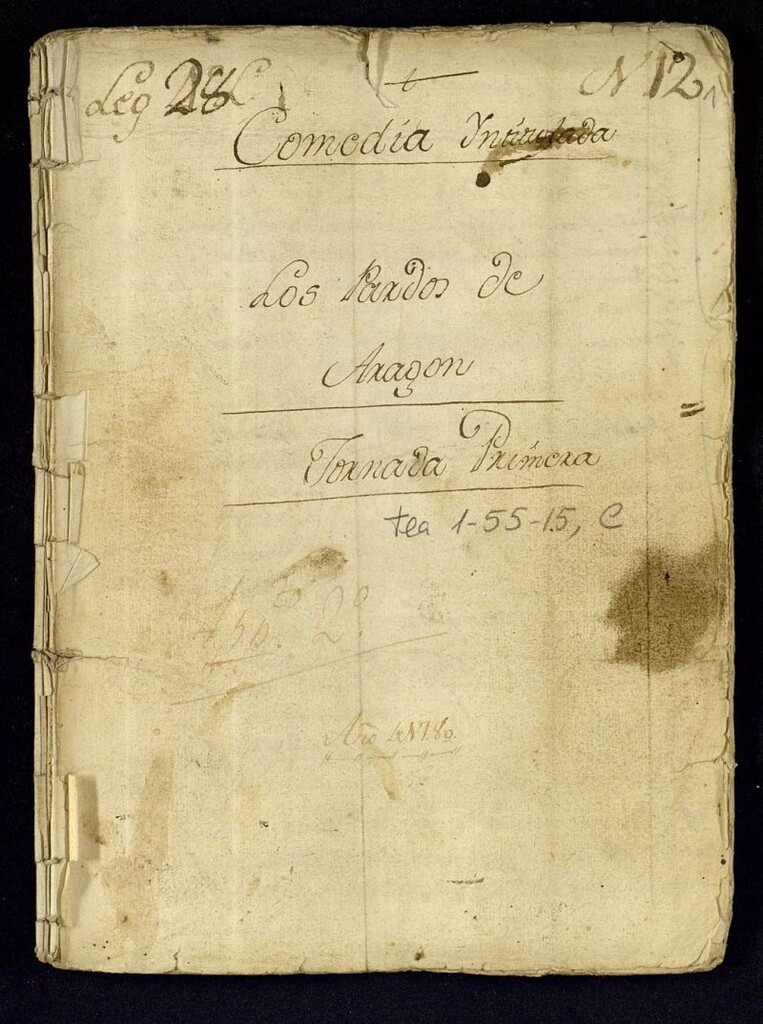 Leg 28
N 12
1
Comedia Yntitulada
Los Pardos de
Aragon
Jornada Primera
tea 1-55-15, C
2º
Año